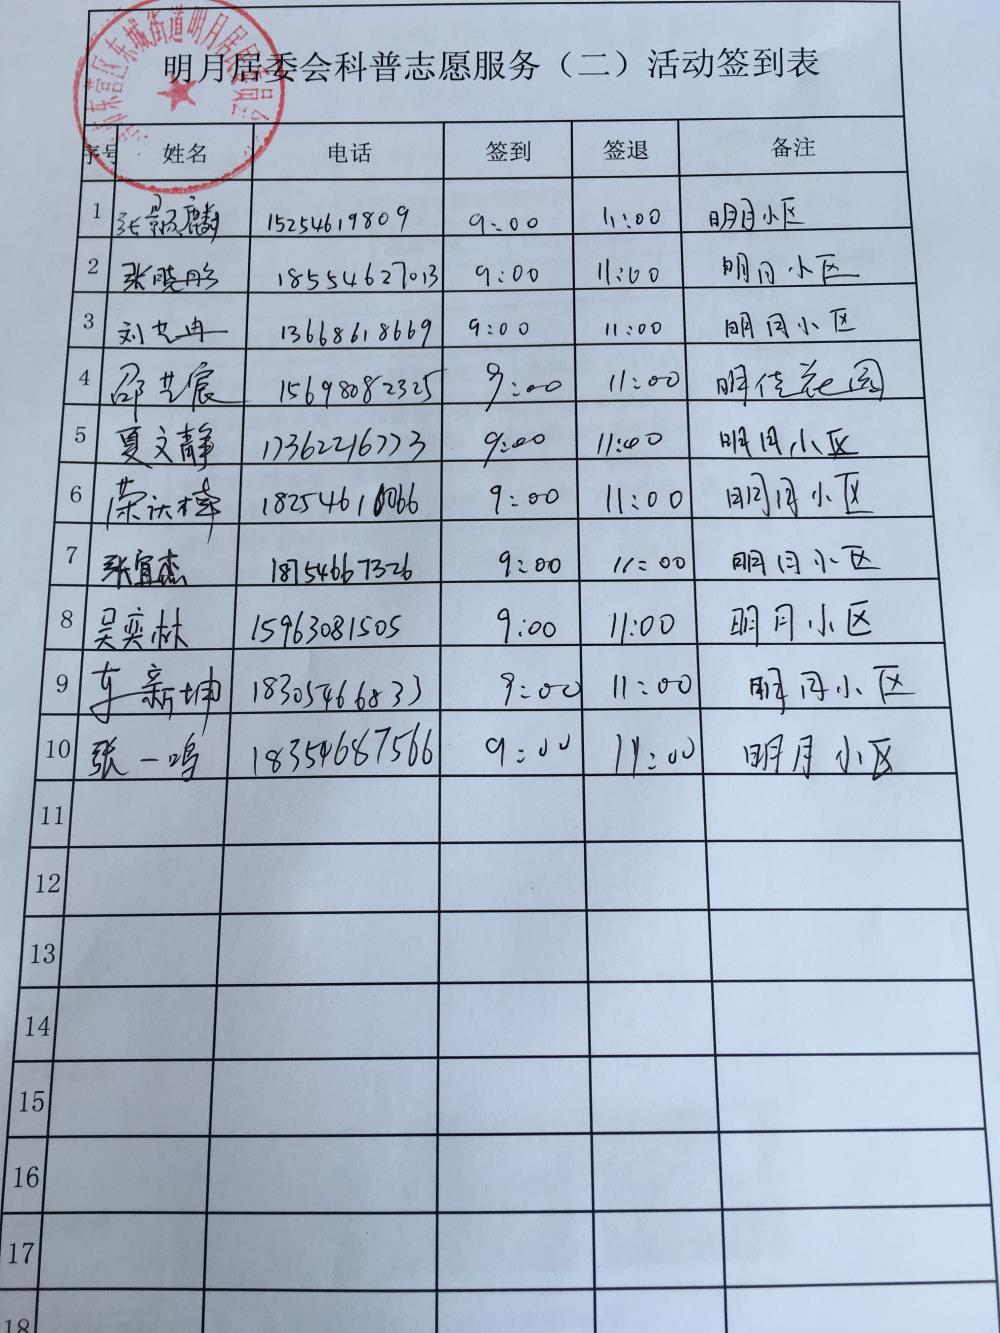 明月居委会科普志愿服务（二）活动签到表
序号 姓名 电话 签到 签退 备注
1 张景麟 15254619809 9:00 11:00 明月小区
2 张晓彤 18554627013 9:00 11:00 明月小区
3 刘艺冉 13668618669 9:00 11:00 明月小区
4 邵艺宸 15698082325 9:00 11:00 明佳花园
5 夏文静 17362216773 9:00 11:00 明月小区
6 18254610066 9:00 11:00 明月小区
7 张宜杰 18754667326 9:00 11:00 明月小区
8 吴奕林 15963081505 9:00 11:00 明月小区
9 车新坤 18305466833 9:00 11:00 明月小区
10 张一鸣 18354687566 9:00 11:00 明月小区
11
12
13
14
15
16
17
18